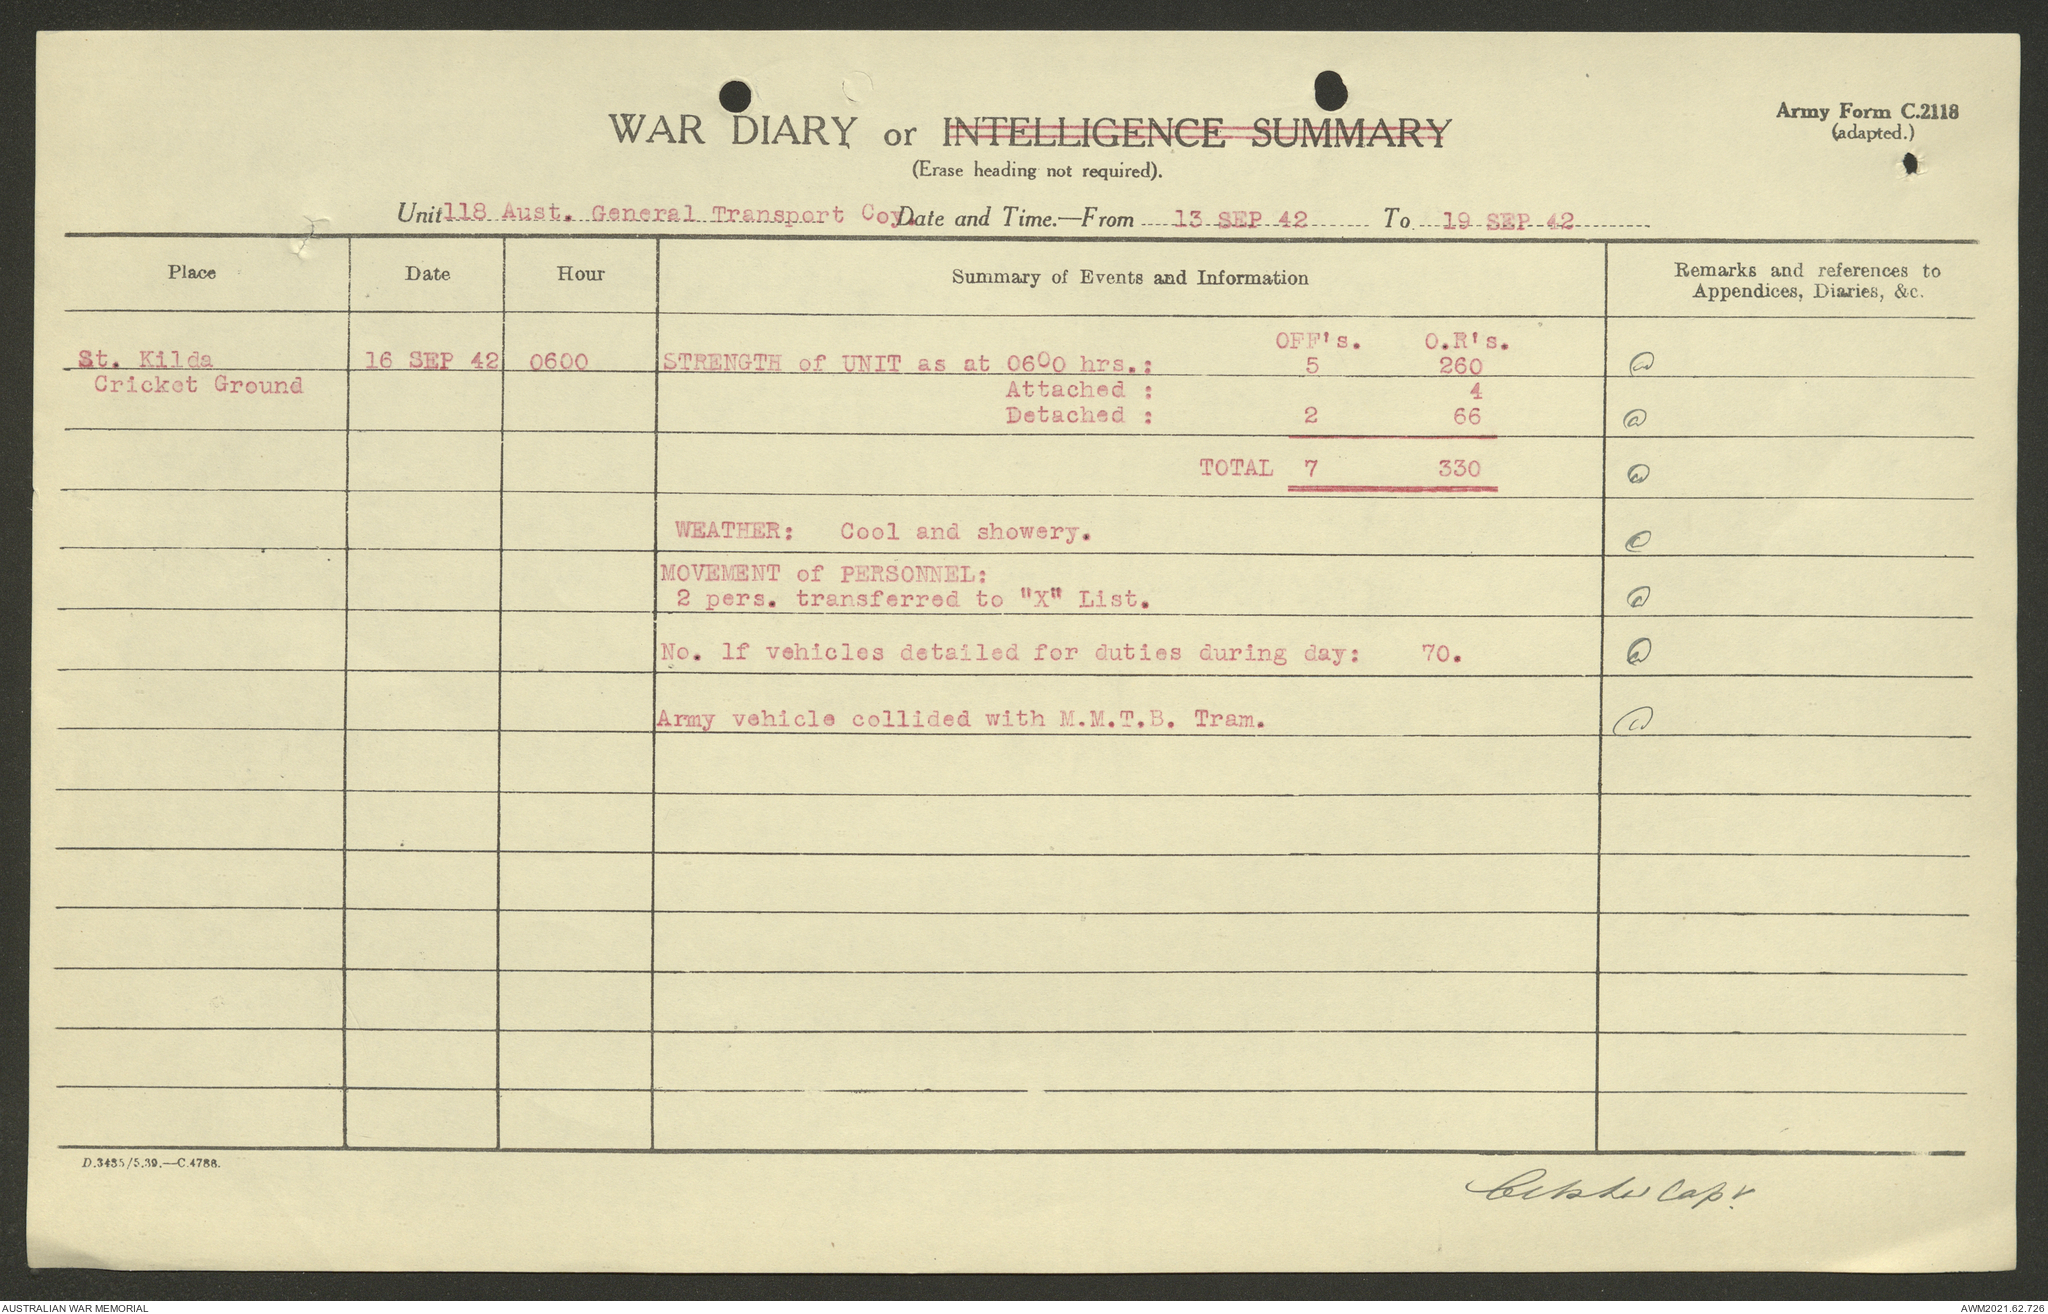 Army Form C.2118
(adapted.)
WAR DIARY or INTELLIGENCE SUMMARY
(Erase heading not required).
Unit 118 Aust. General Transport Coy. Date and Time.—From 13 SEP 42 To 19 SEP 42
Place Date Hour Summary of Events and Information Remarks and references to
Appendices, Diaries, &c.
OFF's. O.R's.
St. Kilda 16 SEP 42 0600 STRENGTH of UNIT as at 0600 hrs.: 5 260
Cricket Ground Attached : 4
Detached : 2 66
TOTAL 7 330
WEATHER: Cool and showery.
MOVEMENT of PERSONNEL:
2 pers. transferred to "X" List.
No. lf vehicles detailed for duties during day: 70.
Army vehicle collided with M.M.T.B. Tram.
D.3435/5.39.—C.4788.
Capt.
AUSTRALIAN WAR MEMORIAL AWM2021.62.726